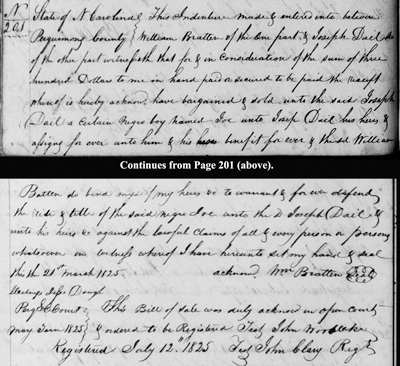 No
201
State of N Carolina } This Indenture made & entered into between
Perquimons County } William Bratten of the one part & Joseph Dail
of the other part witnesseth that for & in Consideration of the sum of three
hundred Dollar to me in hand paid or secured to be paid the receipt
whereof is hereby acknow have bargained & sold unto the said Joseph
Dail a Certain Negro boy named Joe unto Josep Dail his heirs &
assigns for ever unto him & his benefit for ever & the sd William
Continues from Page 201 (above).
Batten do bind myself my heirs &c to warrant & for ever defend
the rite & title of the said Negro Joe unto the Joseph Dail &
unto his heirs &c against the lawful Claims of all & every person or persons
whatsoever in witness whereof I have hereunto set my hand & seal
this the 21st March 1825. acknow Wm Bratten
This Bill of sale was duly acknow in open Court
May Term 1825 & ordered to be Registered Test John Wood
Registered July 12th 1825 Test John Clary Regr